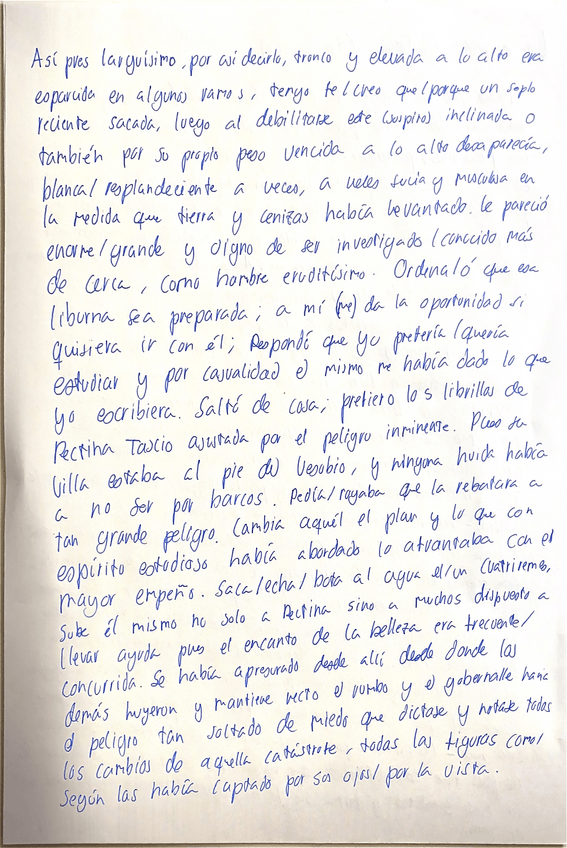 Así pues larguísimo, por así decirlo, tronco y elevada a lo alto era
esparcida en algunos ramos, tengo fe/creo que/porque un soplo
reciente sacada, luego al debilitarse este (suspiro) inclinada o
también por su propio peso vencida a lo alto desaparecía,
blanca/resplandeciente a veces, a veces sucia y musculosa en
la medida que tierra y cenizas había levantado. le pareció
enorme/grande y digno de ser investigado/conocido más
de cerca, como hombre eruditísimo. Ordenaló que esa
liburna sea preparada; a mí (me) da la oportunidad si
quisiera ir con él; Respondí que yo prefería/quería
estudiar y por casualidad el mismo me había dado lo que
yo escribiera. Saltó de casa; prefiero los librillos de
Rectina Tascio asustada por el peligro inminente. Pues su
Villa estaba al pie del Vesubio, y ninguna huida había
a no ser por barcos. Pedía/rogaba que la rebatara a
tan grande peligro. Cambia aquél el plan y lo que con
espíritu estudioso había abordado lo afrontaba con el
mayor empeño. Saca/echa/bota al agua el/un cuatrirreme,
Sube él mismo no solo a Rectina sino a muchos dispuesto a
llevar ayuda pues el encanto de la belleza era frecuente/
concurrida. Se había apresurado desde allí desde donde los
demás huyeron y mantiene recto el rumbo y el gobernalle hacia
el peligro tan soltado de miedo que dictase y notase todos
los cambios de aquella catástrofe, todas las figuras como/
según las había captado por sus ojos/por la vista.